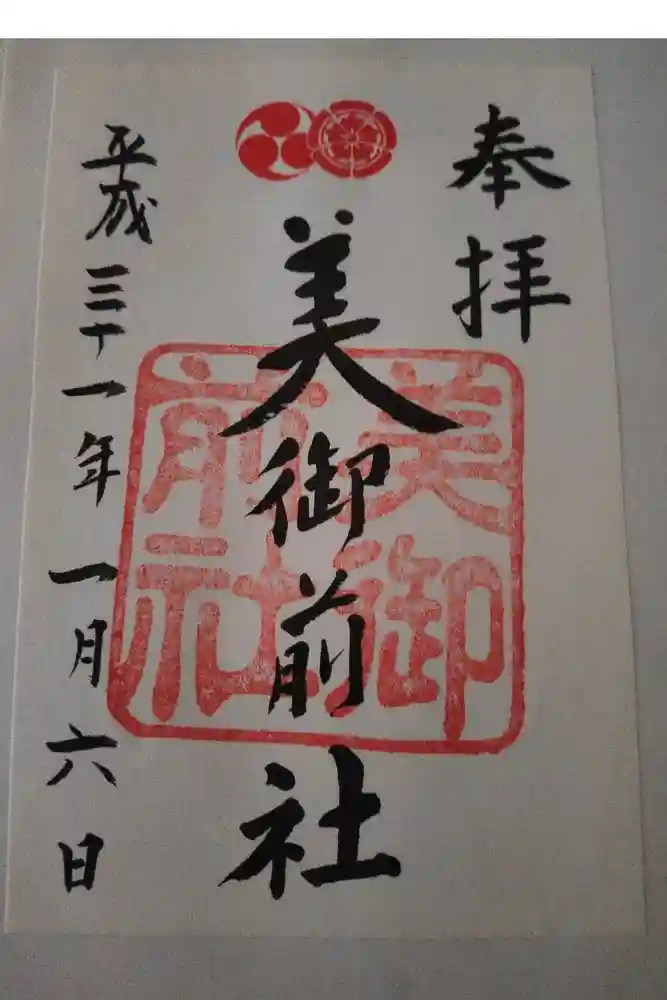 奉拝
美御前社
美御前社
平成三十一年一月六日